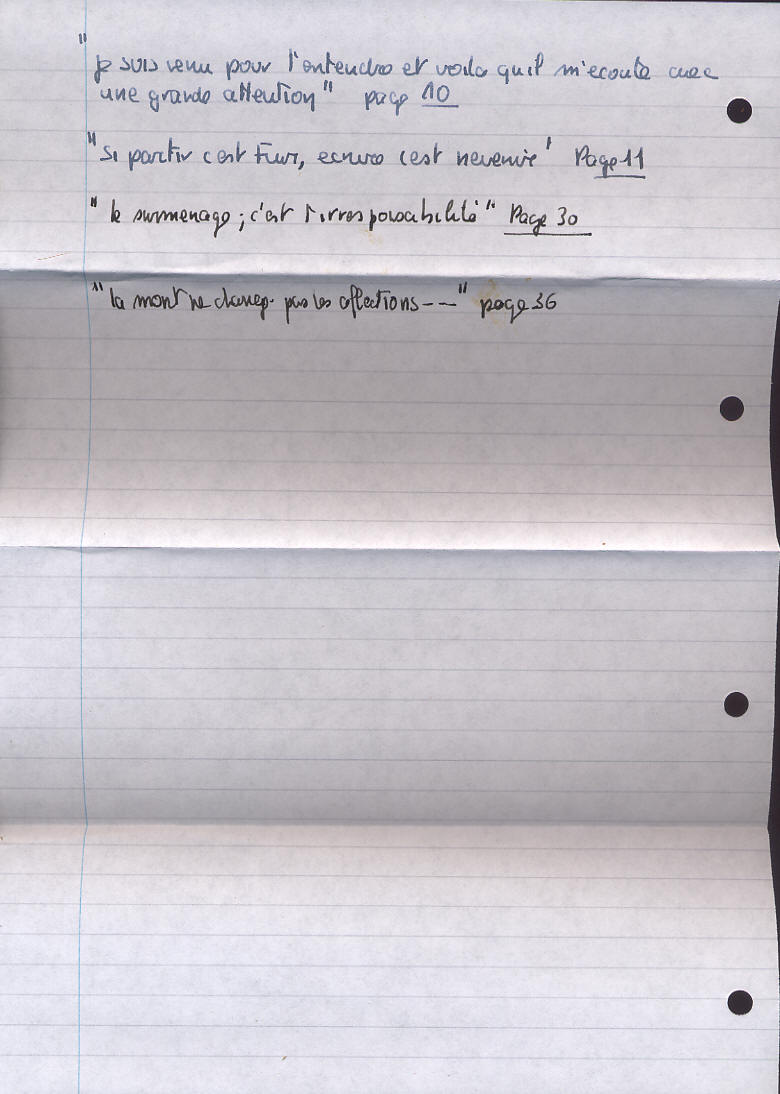 "
je suis venu pour l'entendre et voila qu'il m'ecoute avec
une grande attention" page 10
"si partir c'est fuir, ecrire c'est revenir" Page 11
"le surmenage ; c'est l'irresponsabilité" Page 30
"la mort ne change pas les affections ---" page 36